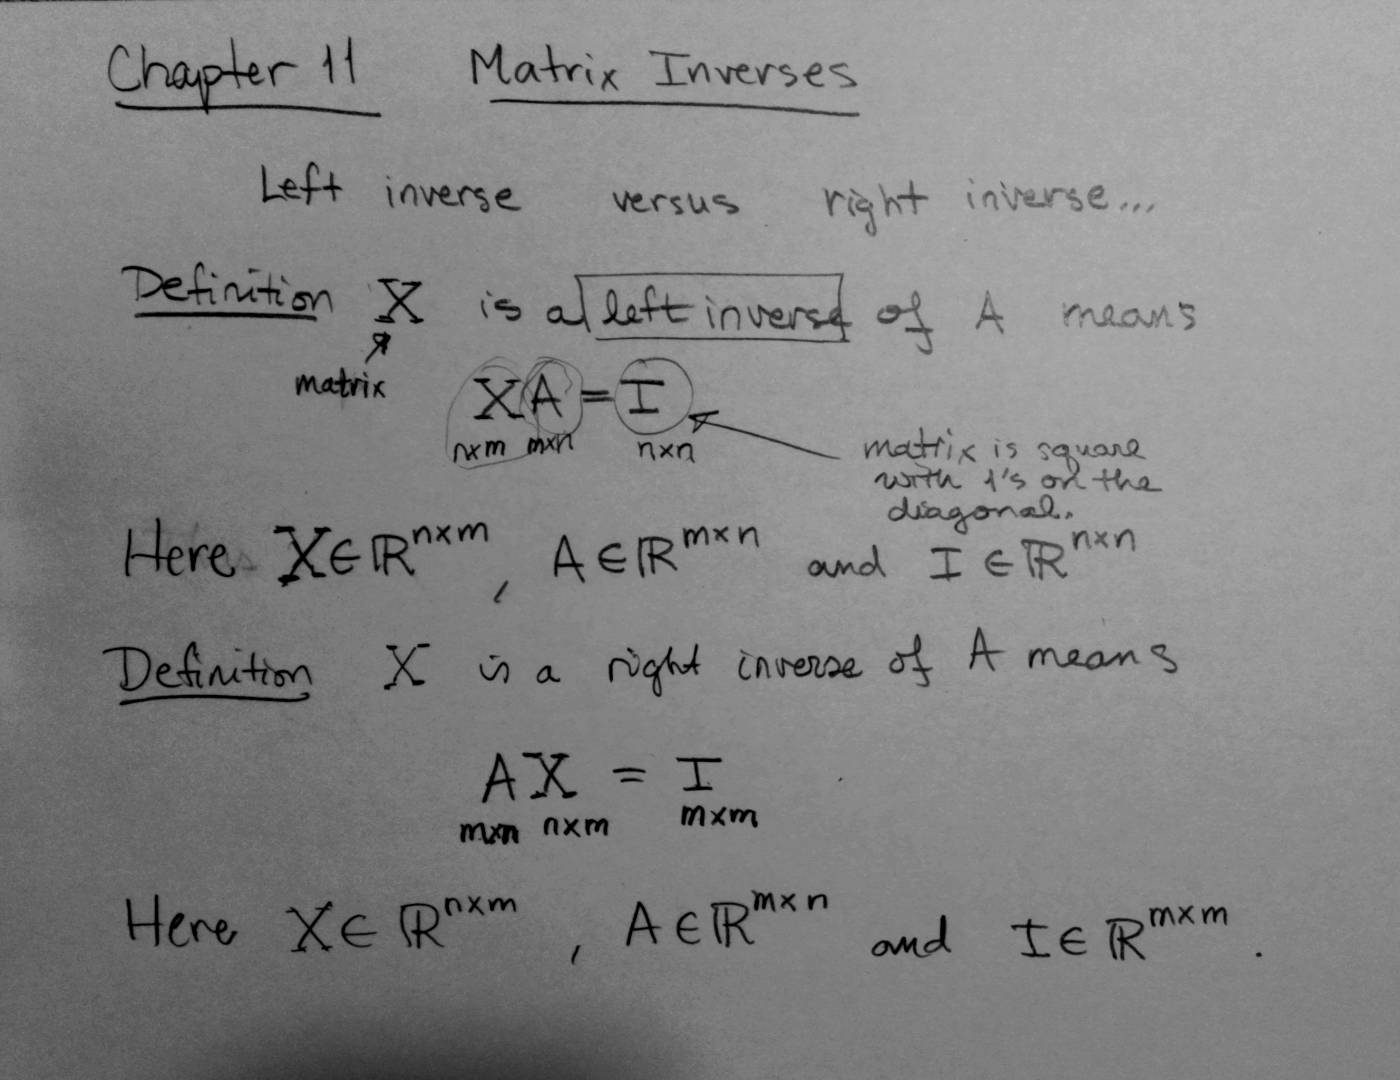 Chapter 11 Matrix Inverses
Left inverse versus right inverse...
Definition X is a left inverse of A means
matrix
XA = I
n×m m×n n×n
matrix is square
with 1's on the
diagonal.
Here X∈ℝⁿˣᵐ, A∈ℝᵐˣⁿ and I∈ℝⁿˣⁿ
Definition X is a right inverse of A means
AX = I
m×n n×m m×m
Here X∈ℝⁿˣᵐ, A∈ℝᵐˣⁿ and I∈ℝᵐˣᵐ.